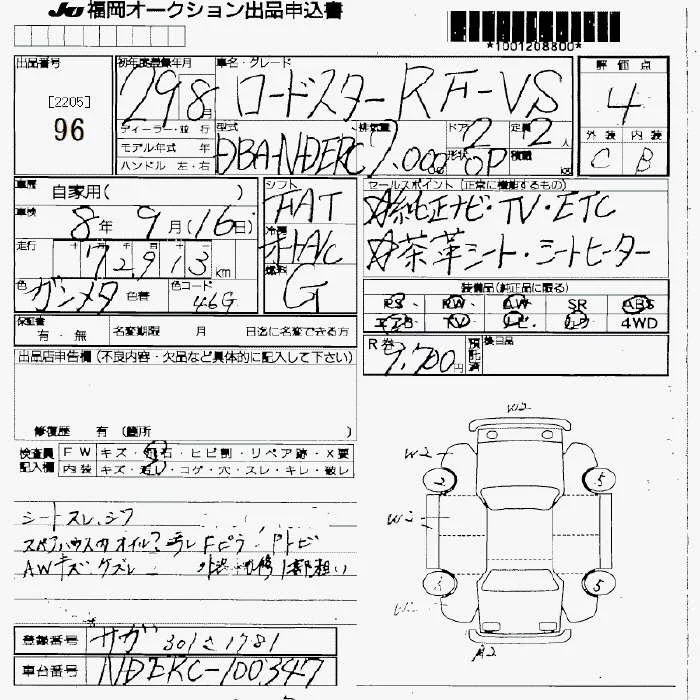 JU 福岡オークション出品申込書
*1001208800*
出品番号
[2205]
96
初年度登録年月
29 8月
車名・グレード
ロードスターRF-VS
評価点
4
外装 内装
C B
ディーラー・並行
モデル年式 年
ハンドル 左・右
型式
DBA-NDERC
排気量
2,000cc
ドア 2
形状 OP
定員 2人
積載 kg
車歴
自家用( )
車検
8年 9月(16日)
走行
72,913km
色 ガンメタ 色替
色コード 46G
シフト
FAT
冷房
オートA/C
燃料
G
セールスポイント(正常に機能するもの)
☆純正ナビ・TV・ETC
☆茶革シート・シートヒーター
装備品(純正品に限る)
PS・PW・AW・SR・ABS
エアB・TV・ナビ・カワ・4WD
保証書
有・無
名変期限 月 日迄に名変できる方
R券
9,700円
預託済
後日品
出品店申告欄(不良内容・欠品など具体的に記入して下さい)
修復歴 有(箇所 )
検査員記入欄
FW キズ・飛石・ヒビ割・リペア跡・X要
内装 キズ・汚レ・コゲ・穴・スレ・キレ・破レ
シートスレ、シワ
AWキズ・ケズレ
W2
W2
2
5
W2
3
5
A2
登録番号 サガ 301さ1781
車台番号 NDERC-100347